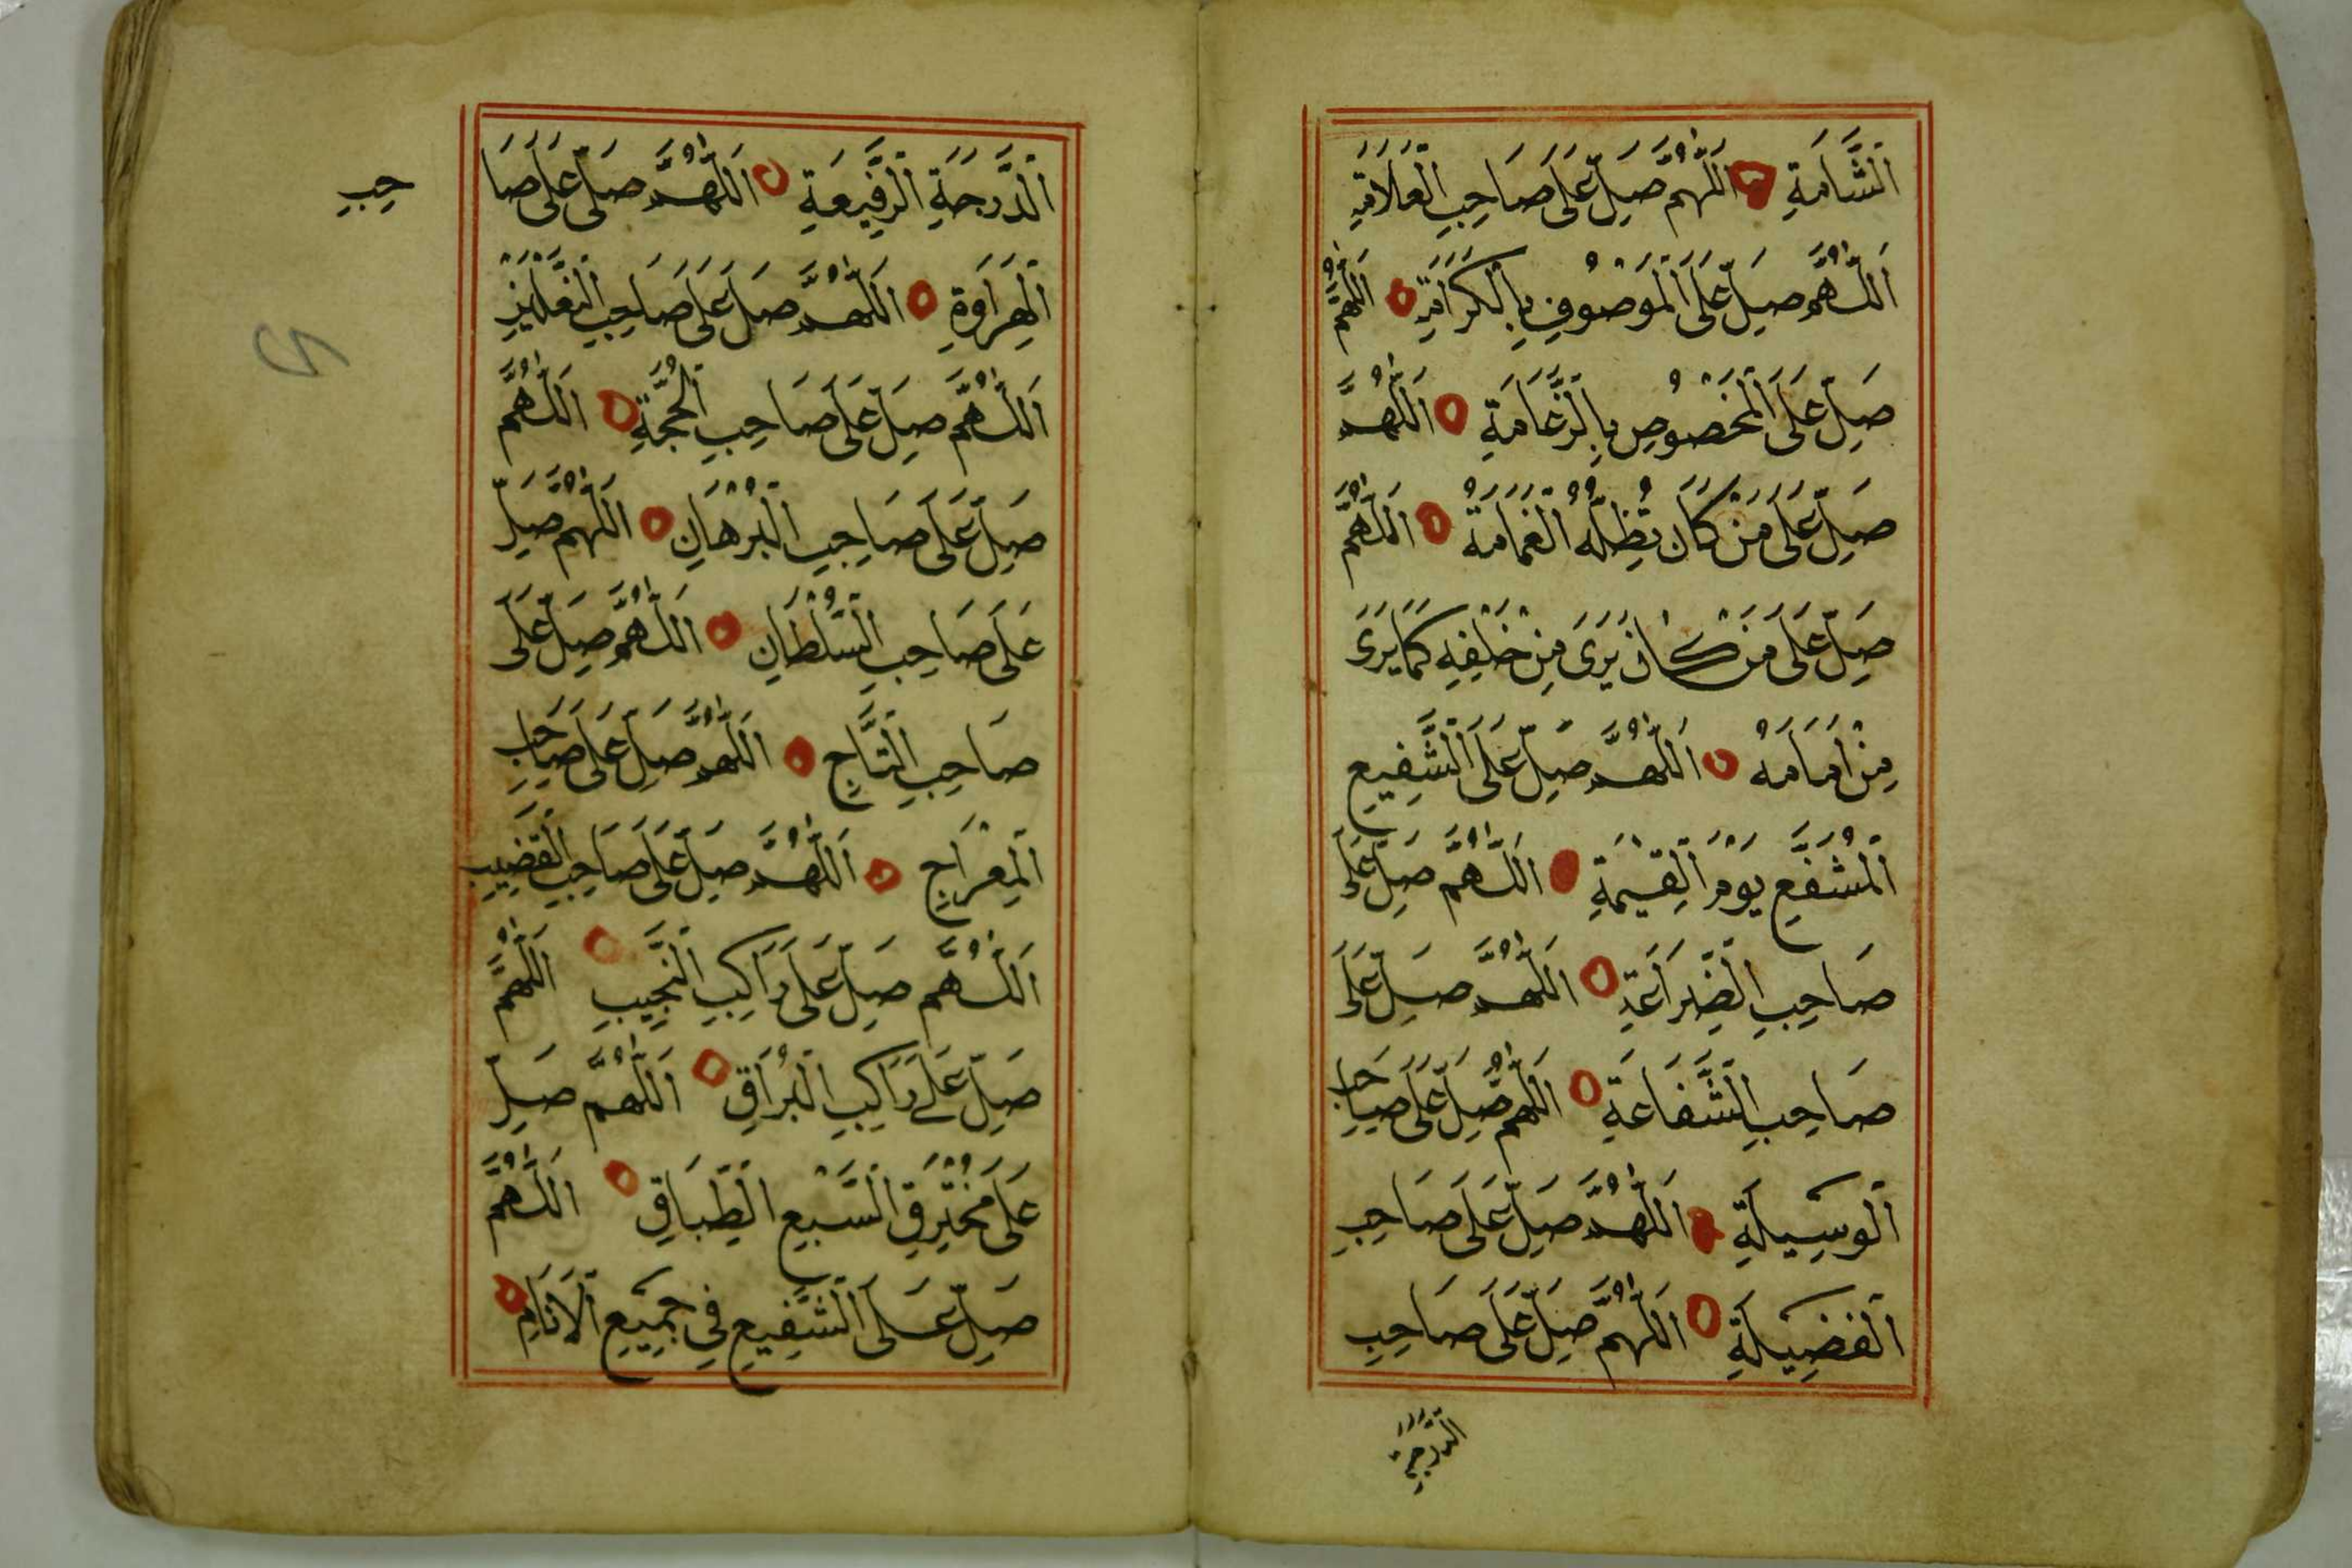 اَلشَّامَةِ اَللّٰهُمَّ صَلِّ عَلَى صَاحِبِ الْعَلَامَةِ
اَللّٰهُمَّ صَلِّ عَلَى الْمَوْصُوْفِ بِالْكَرَامَةِ اَللّٰهُمَّ
صَلِّ عَلَى الْمَخْصُوْصِ بِالزَّعَامَةِ اَللّٰهُمَّ
صَلِّ عَلَى مَنْ كَانَ تُظِلُّهُ الْغَمَامَةُ اَللّٰهُمَّ
صَلِّ عَلَى مَنْ كَانَ يَرَى مِنْ خَلْفِهِ كَمَا يَرَى
مِنْ اَمَامَهُ اَللّٰهُمَّ صَلِّ عَلَى الشَّفِيعِ
الْمُشَفَّعِ يَوْمَ الْقِيٰمَةِ اَللّٰهُمَّ صَلِّ عَلَى
صَاحِبِ الضَّرَاعَةِ اَللّٰهُمَّ صَلِّ عَلَى
صَاحِبِ الشَّفَاعَةِ اَللّٰهُمَّ صَلِّ عَلَى صَاحِبِ
الْوَسِيلَةِ اَللّٰهُمَّ صَلِّ عَلَى صَاحِبِ
الْفَضِيلَةِ اَللّٰهُمَّ صَلِّ عَلَى صَاحِبِ
الدَّرَجَةِ
الدَّرَجَةِ الرَّفِيعَةِ اَللّٰهُمَّ صَلِّ عَلَى صَا
حِبِ
الْهِرَاوَةِ اَللّٰهُمَّ صَلِّ عَلَى صَاحِبِ النَّعْلَيْنِ
اَللّٰهُمَّ صَلِّ عَلَى صَاحِبِ الْحُجَّةِ اَللّٰهُمَّ
صَلِّ عَلَى صَاحِبِ الْبُرْهَانِ اَللّٰهُمَّ صَلِّ
عَلَى صَاحِبِ السُّلْطَانِ اَللّٰهُمَّ صَلِّ عَلَى
صَاحِبِ التَّاجِ اَللّٰهُمَّ صَلِّ عَلَى صَاحِبِ
الْمِعْرَاجِ اَللّٰهُمَّ صَلِّ عَلَى صَاحِبِ الْقَضِيبِ
اَللّٰهُمَّ صَلِّ عَلَى رَاكِبِ النَّجِيبِ اَللّٰهُمَّ
صَلِّ عَلَى رَاكِبِ الْبُرَاقِ اَللّٰهُمَّ صَلِّ
عَلَى مُخْتَرِقِ السَّبْعِ الطِّبَاقِ اَللّٰهُمَّ
صَلِّ عَلَى الشَّفِيعِ فِي جَمِيعِ الْاَنَامِ